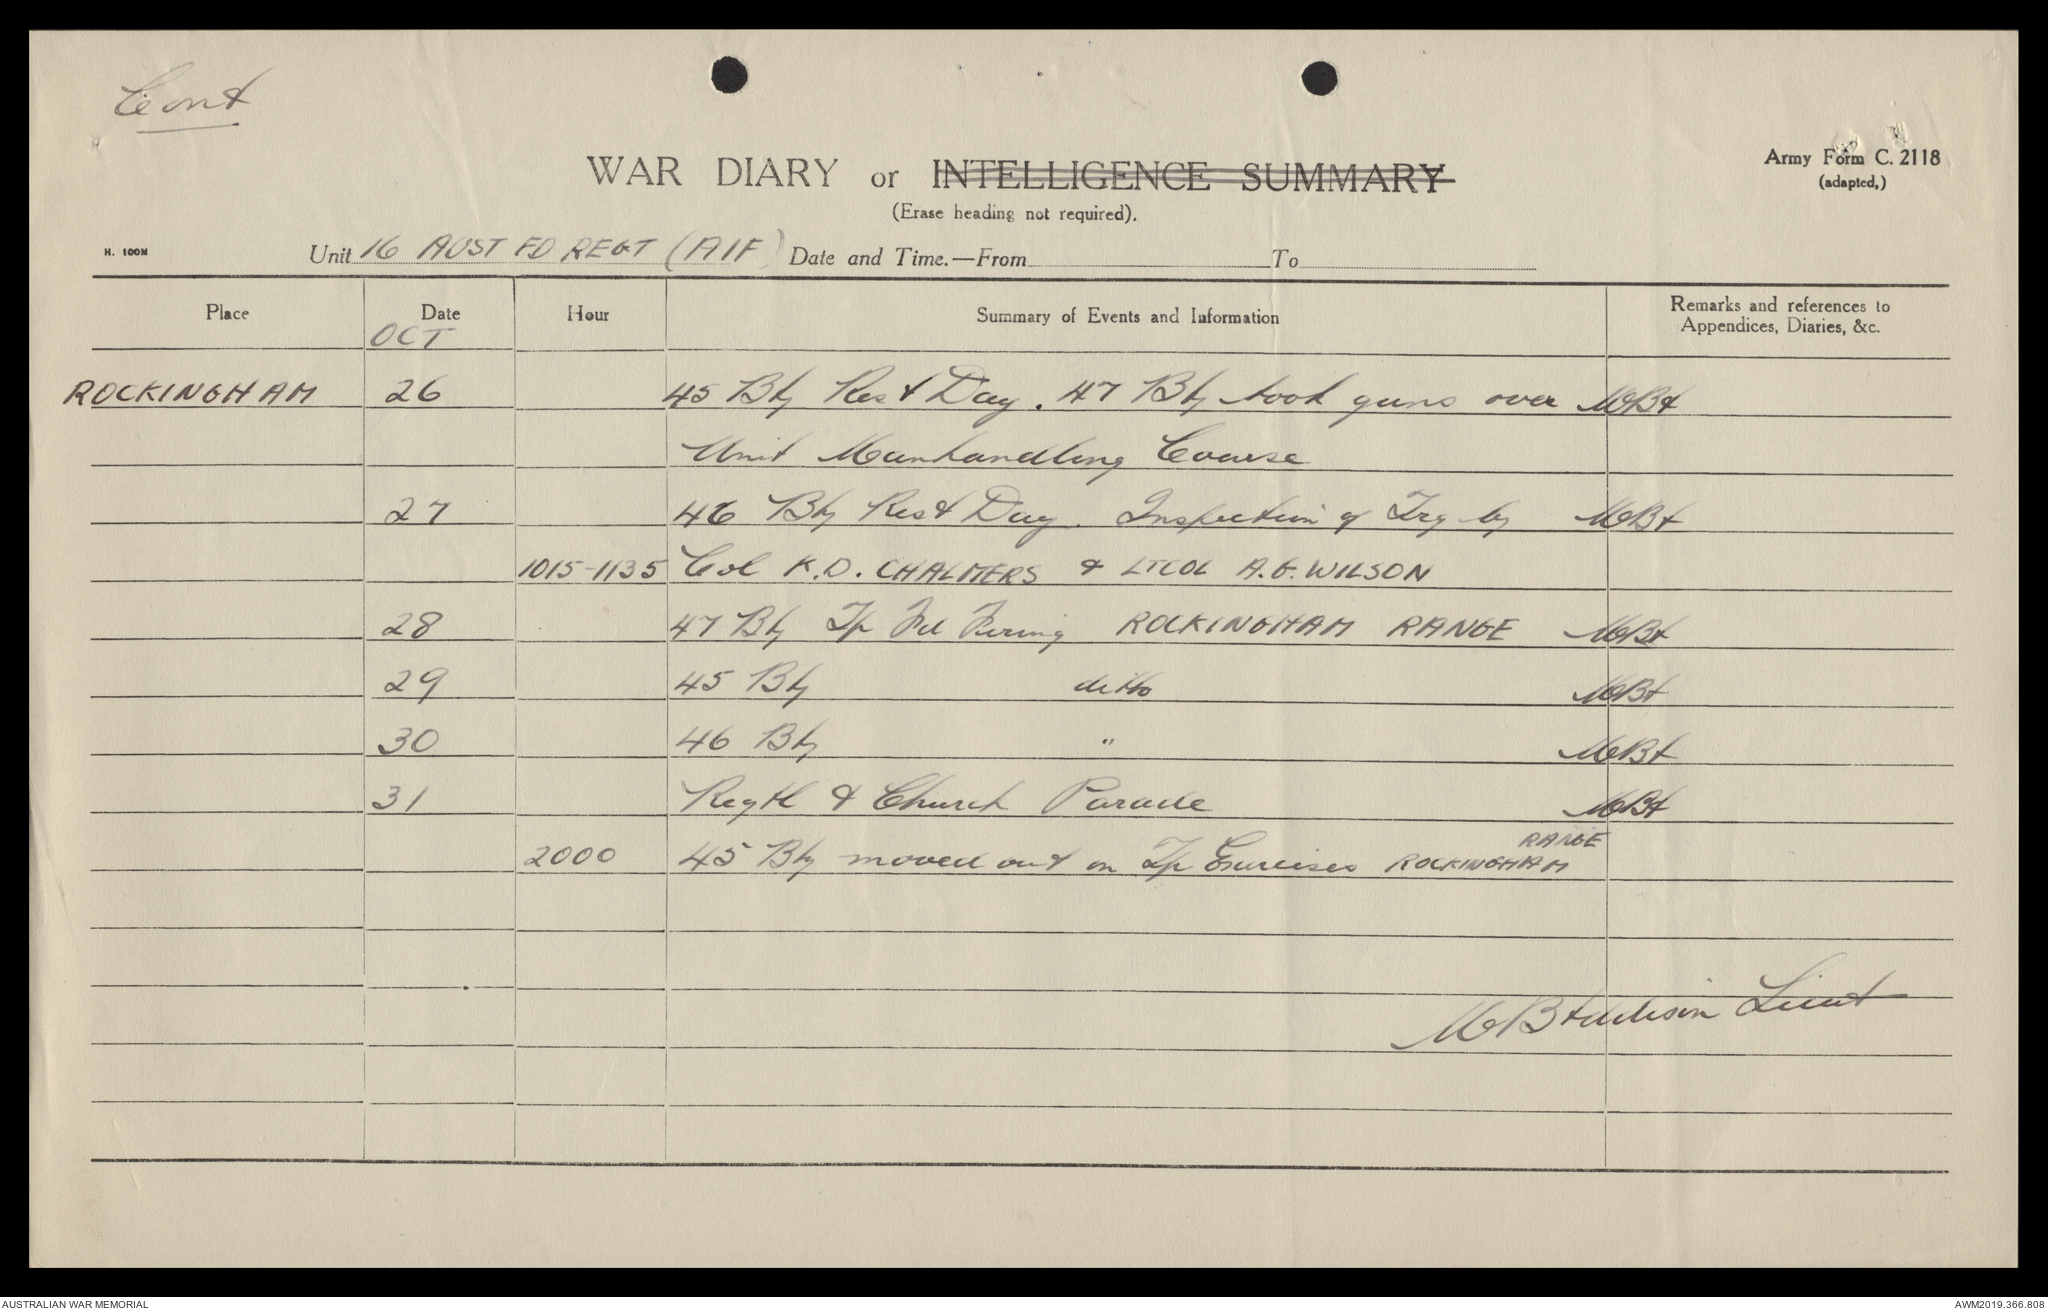 Cont
WAR DIARY or INTELLIGENCE SUMMARY
Army Form C. 2118
(adapted.)
(Erase heading not required).
H. 100M
Unit 16 AUST FD REGT (AIF) Date and Time.—From To
Place Date Hour Summary of Events and Information Remarks and references to
Appendices, Diaries, &c.
OCT
ROCKINGHAM 26 45 Bty Rest Day. 47 Bty took guns over
Unit Manhandling Course
27 46 Bty Rest Day. Inspection of Trg by
1015-1135 Col K.D. CHALMERS & LTCOL A.G. WILSON
28 47 Bty Tp Fd Firing ROCKINGHAM RANGE
29 45 Bty ditto
30 46 Bty "
31 Regtl & Church Parade
RANGE
2000 45 Bty moved out on Tp Exercises ROCKINGHAM
Lieut
AUSTRALIAN WAR MEMORIAL
AWM2019.366.808